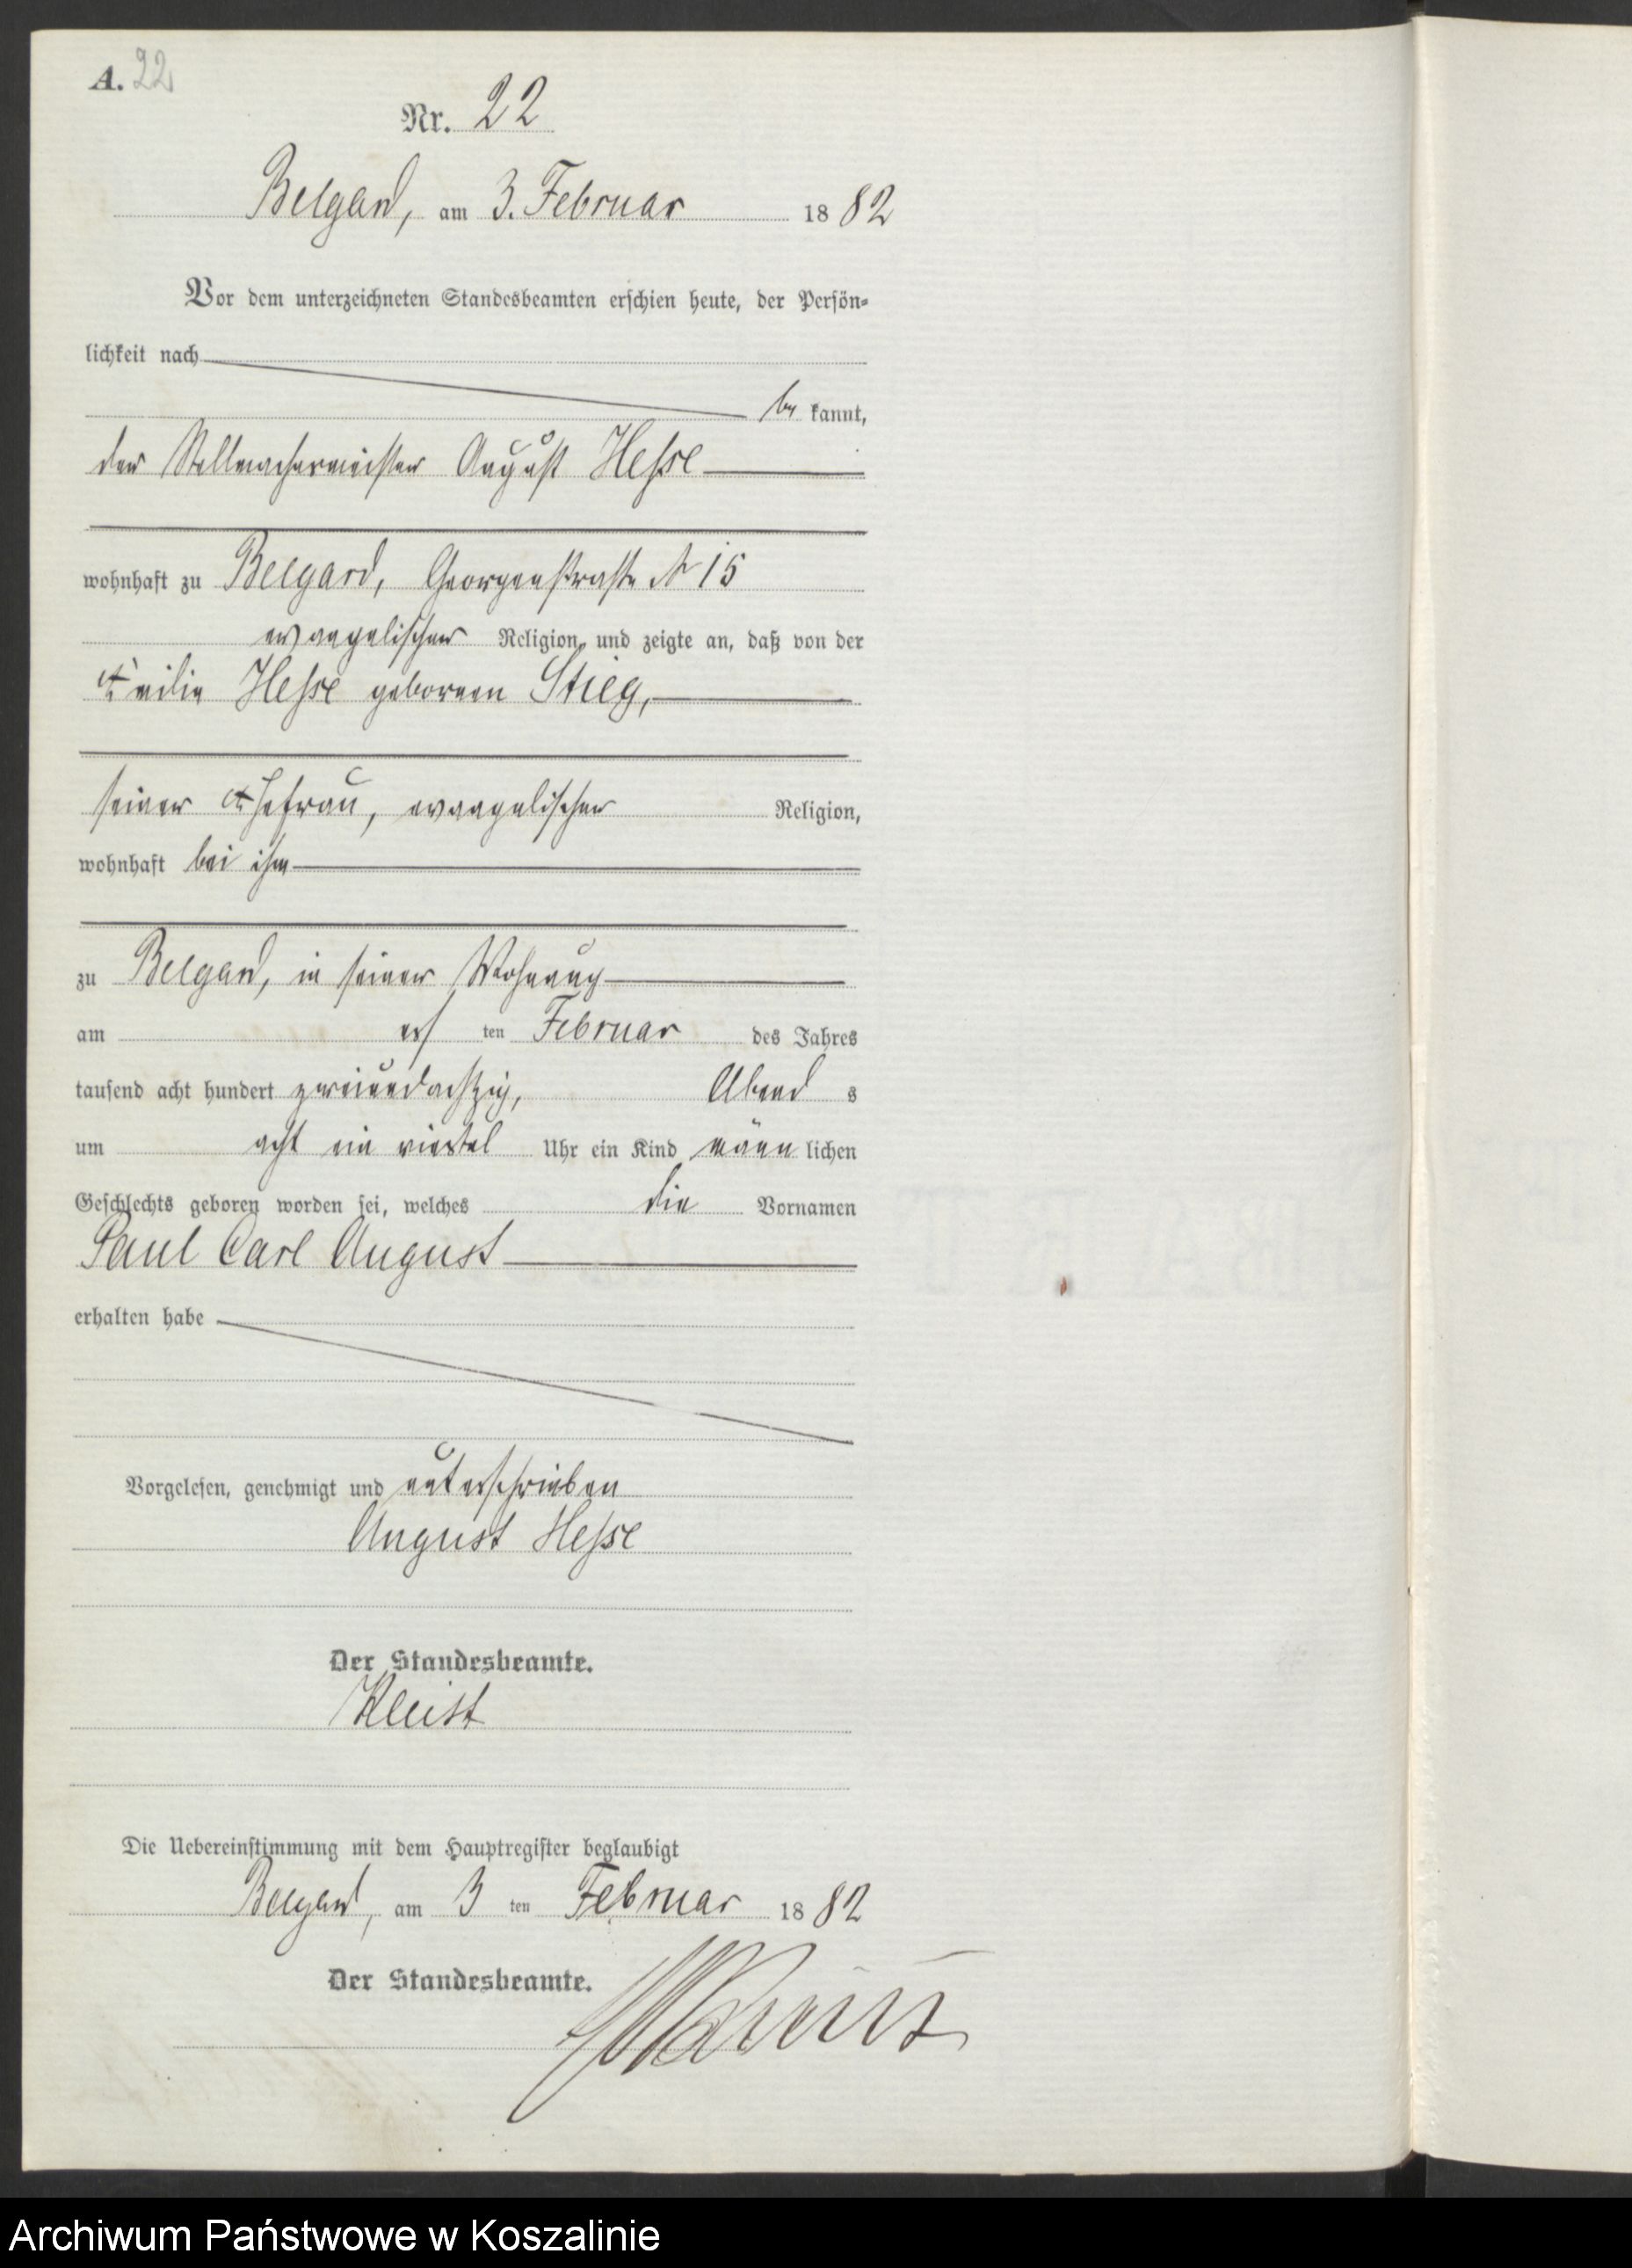 A. 22
Nr. 22
Belgard, am 3. Februar 1882
Vor dem unterzeichneten Standesbeamten erschien heute, der Persön-
lichkeit nach
be kannt,
der Stellmachermeister August Hesse
wohnhaft zu Belgard, Georgenstraße № 15
evangelischer Religion, und zeigte an, daß von der
Emilie Hesse geborenen Stieg,
seiner Ehefrau, evangelischer Religion,
wohnhaft bei ihm
zu Belgard, in seiner Wohnung
am ersten Februar des Jahres
tausend acht hundert zweiundachtzig, Abends
um acht ein viertel Uhr ein Kind männlichen
Geschlechts geboren worden sei, welches die Vornamen
Paul Carl August
erhalten habe
Vorgelesen, genehmigt und unterschrieben
August Hesse
Der Standesbeamte.
Kleist
Die Uebereinstimmung mit dem Hauptregister beglaubigt
Belgard, am 3 ten Februar 1882
Der Standesbeamte.
Archiwum Państwowe w Koszalinie